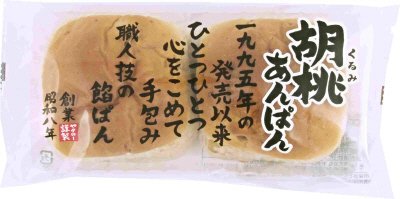 胡桃
くるみ
あんぱん
一九九五年の
発売以来
ひとつひとつ
心をこめて
手包み
職人技の
餡ぱん
創業
昭和八年
謹製